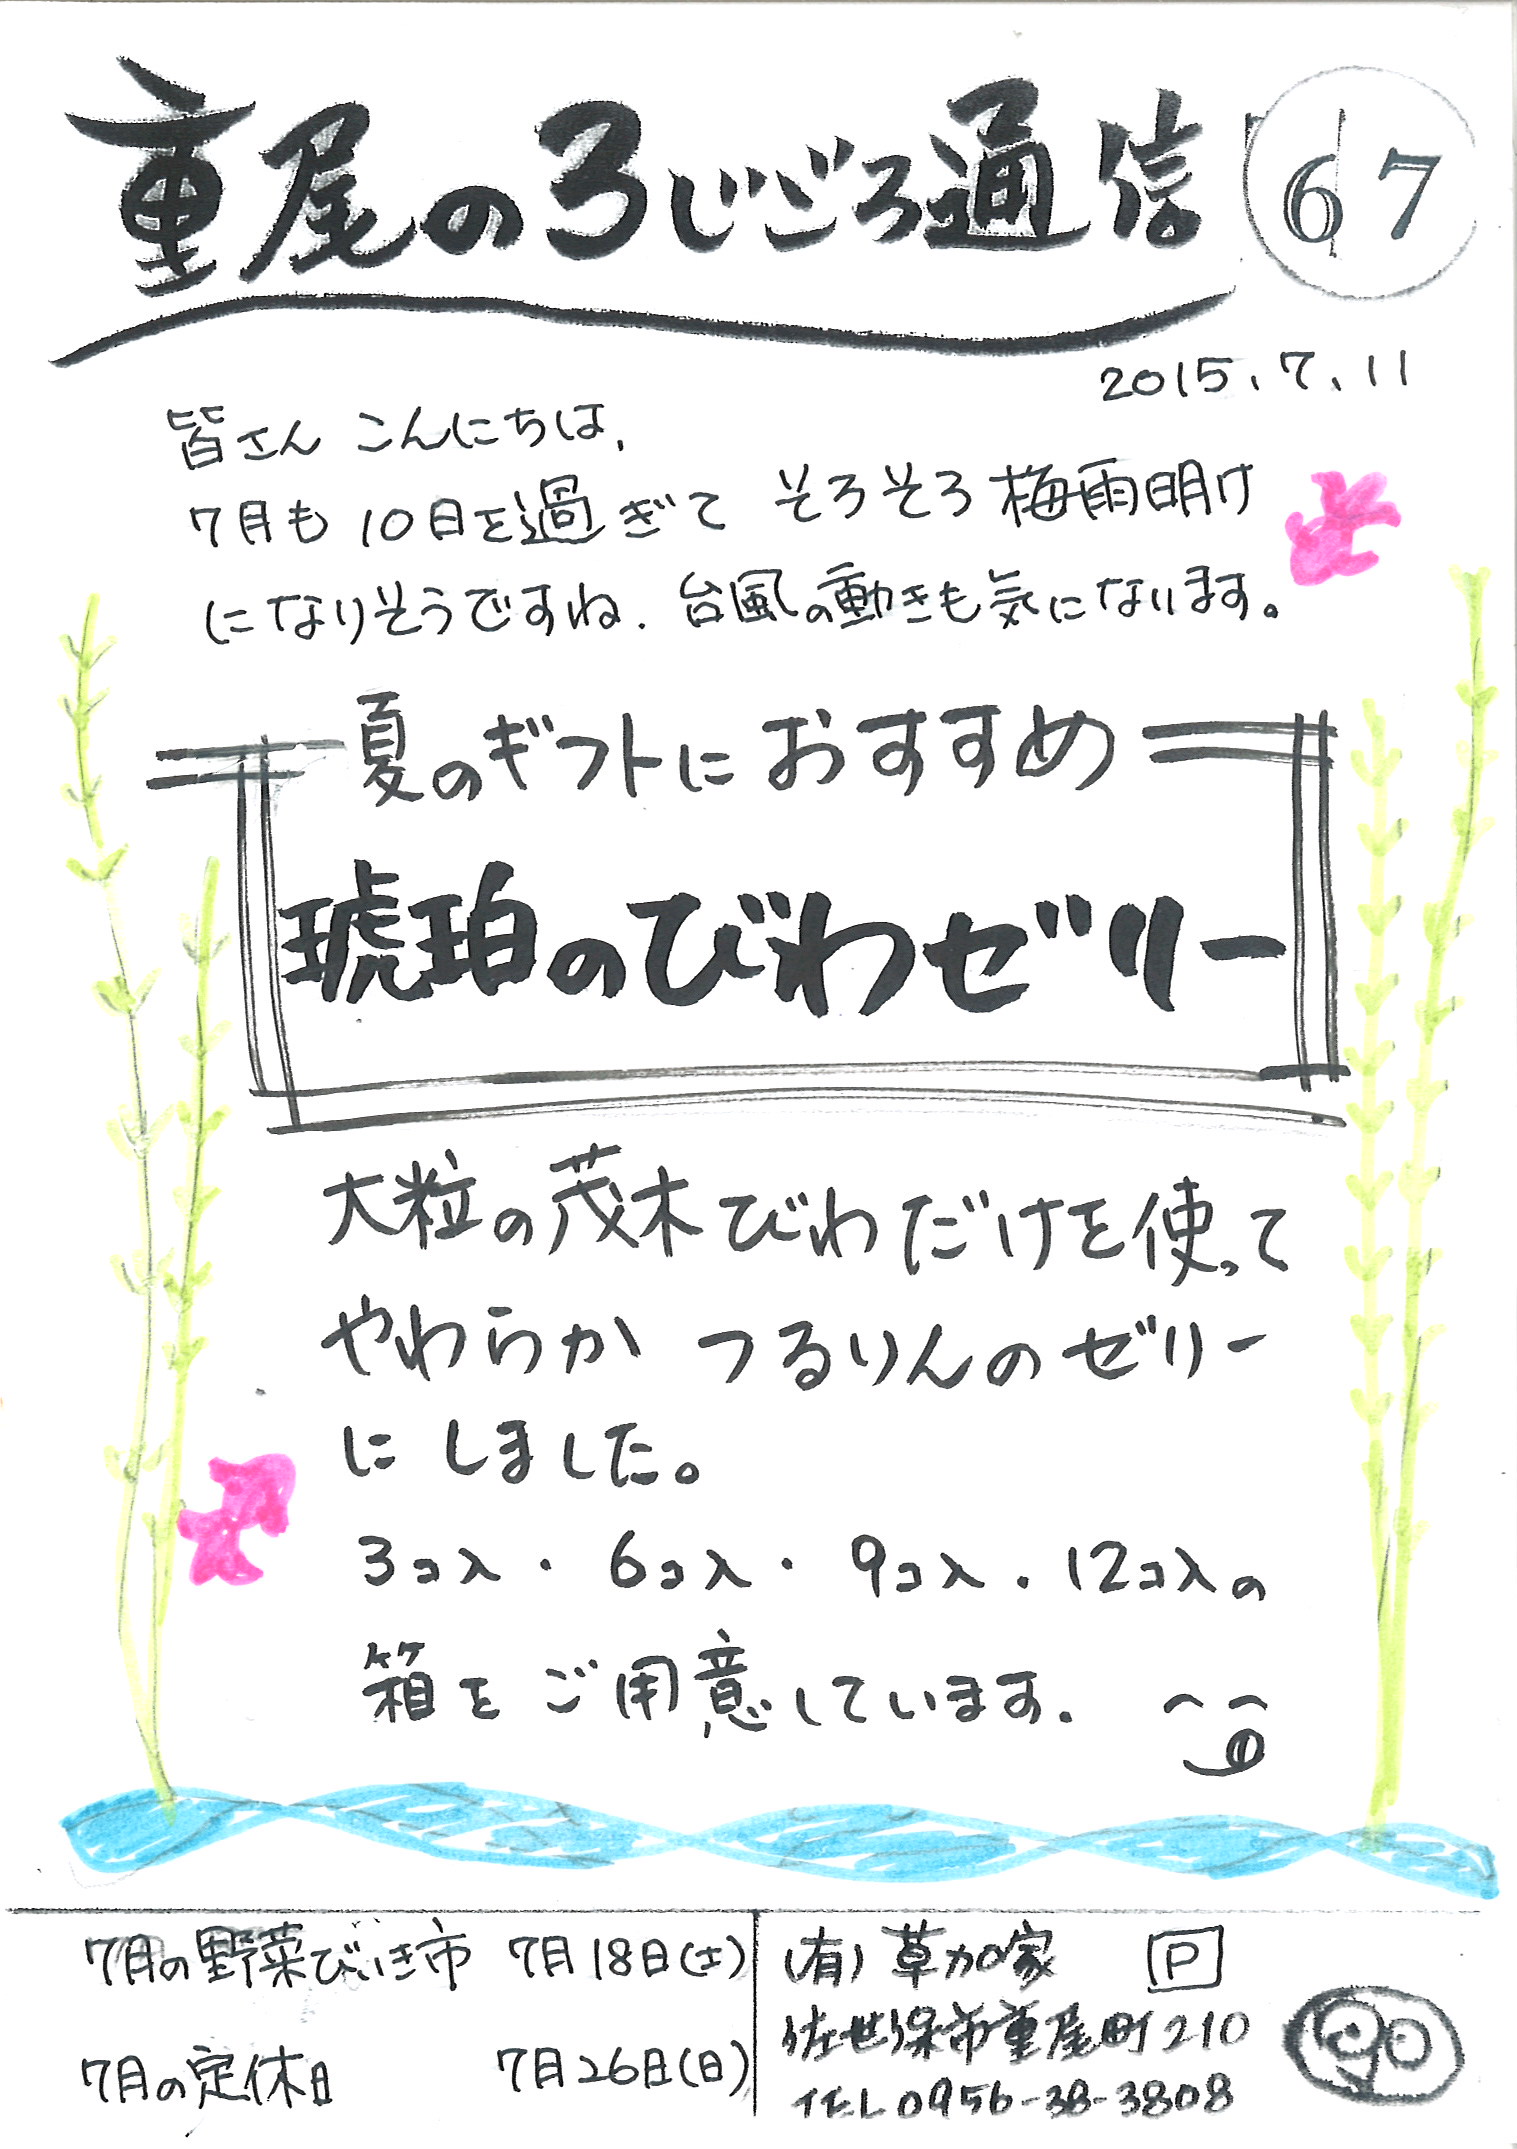 重尾のろじごろ通信 67
2015.7.11
皆さん こんにちは、
7月も10日を過ぎて そろそろ梅雨明け
になりそうですね。台風の動きも気になります。
夏のギフトに おすすめ
琥珀のびわゼリー
大粒の茂木びわだけを使って
やわらか つるりんのゼリー
に しました。
3コ入・6コ入・9コ入・12コ入の
箱を ご用意しています。
7月の野菜びいき市 7月18日(土)
7月の定休日 7月26日(日)
(有)草加家 P
佐世保市重尾町210
TEL 0956-38-3808